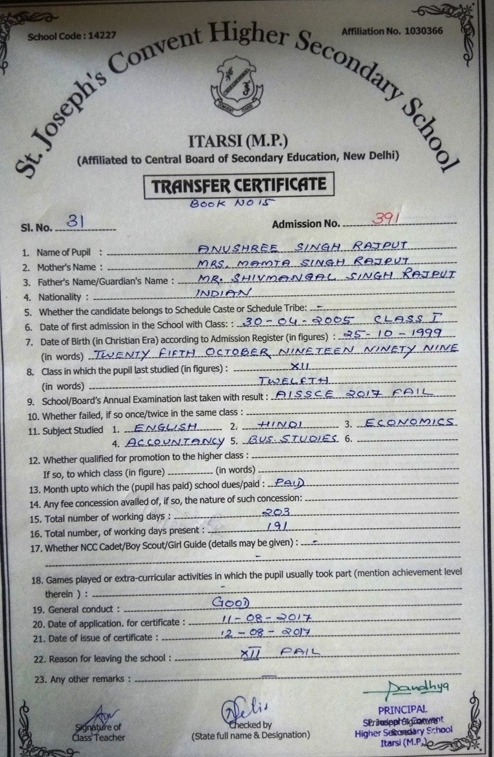 School Code : 14227
Affiliation No. 1030366
St. Joseph's Convent Higher Secondary School
ITARSI (M.P.)
(Affiliated to Central Board of Secondary Education, New Delhi)
TRANSFER CERTIFICATE
BOOK NO 15
Sl. No. 31 Admission No. 391
1. Name of Pupil : ANUSHREE SINGH RAJPUT
2. Mother's Name : MRS. MAMTA SINGH RAJPUT
3. Father's Name/Guardian's Name : MR. SHIVMANGAL SINGH RAJPUT
4. Nationality : INDIAN
5. Whether the candidate belongs to Schedule Caste or Schedule Tribe: -
6. Date of first admission in the School with Class : : 30-04-2005 CLASS I
7. Date of Birth (in Christian Era) according to Admission Register (in figures) : 25-10-1999
(in words) TWENTY FIFTH OCTOBER NINETEEN NINETY NINE
8. Class in which the pupil last studied (in figures) : XII
(in words) TWELFTH
9. School/Board's Annual Examination last taken with result : AISSCE 2017 FAIL
10. Whether failed, if so once/twice in the same class :
11. Subject Studied 1. ENGLISH 2. HINDI 3. ECONOMICS
4. ACCOUNTANCY 5. BUS. STUDIES 6.
12. Whether qualified for promotion to the higher class :
If so, to which class (in figure) (in words)
13. Month upto which the (pupil has paid) school dues/paid : PAID
14. Any fee concession availed of, if so, the nature of such concession:
15. Total number of working days : 203
16. Total number, of working days present : 191
17. Whether NCC Cadet/Boy Scout/Girl Guide (details may be given) : -
-
18. Games played or extra-curricular activities in which the pupil usually took part (mention achievement level
therein ) : -
19. General conduct : GOOD
20. Date of application. for certificate : 11-08-2017
21. Date of issue of certificate : 12-08-2017
22. Reason for leaving the school : XII FAIL
23. Any other remarks : —
Signature of
Class Teacher
Checked by
(State full name & Designation)
PRINCIPAL
Higher Secondary School
Itarsi (M.P.)